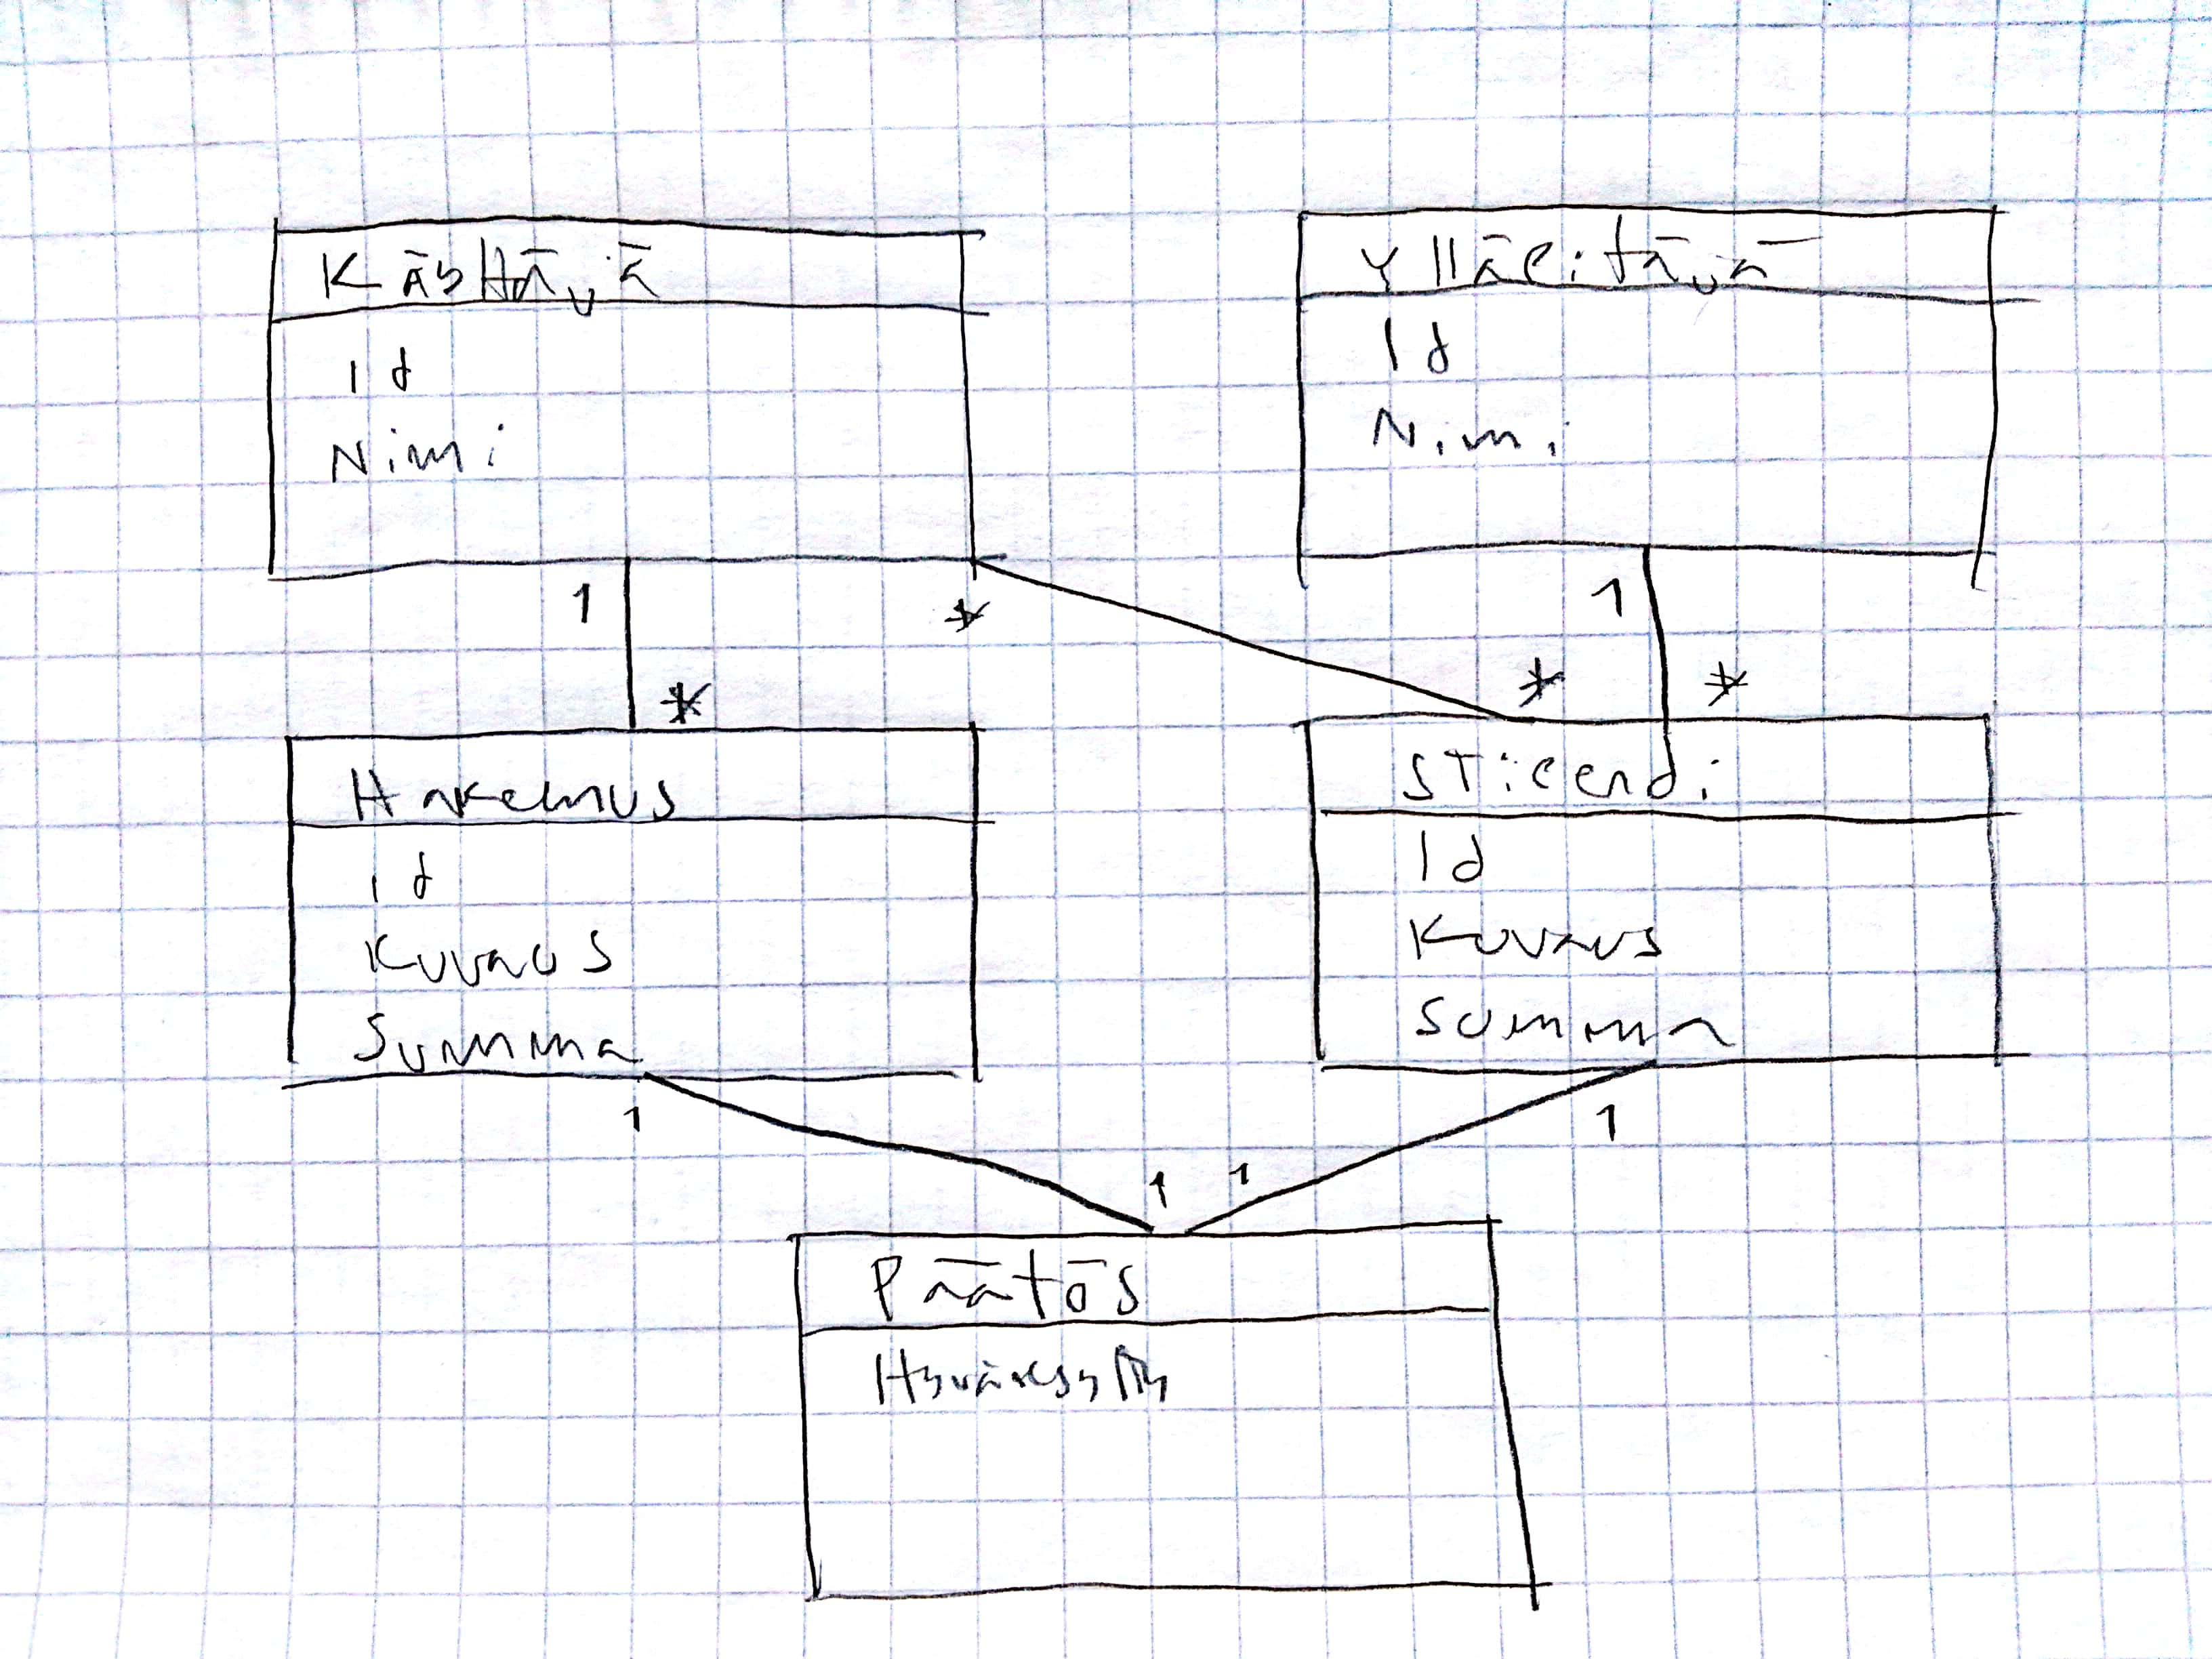 Käyttävä
Id
Nimi
Ylläpitävä
Id
Nimi
1
*
*
*
1
*
Hakemus
Id
Kuvaus
Summa
Stipendi
Id
Kuvaus
Summa
1
1
1
1
Päätös
Hyväksytty